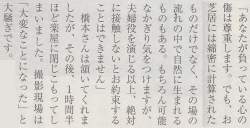 「あなたが負っている心の
傷は尊重します。でも、お
芝居には綿密に計算された
ものだけでなく、その場の
流れの中で自然に生まれる
ものもある。もちろん可能
なかぎり気をつけますが、
夫婦役を演じる以上、絶対
に接触しないとお約束する
ことはできません」
橋本さんは頷いてくれま
したが、その後、1時間半
ほど楽屋に閉じこもってし
まいました。撮影現場は
『大変なことになった』と
大騒ぎです。